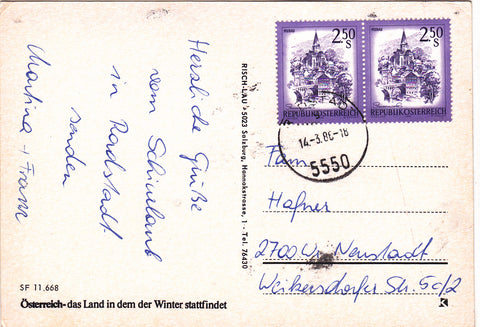 Herzliche Grüße
vom Schiurlaub
in Radstadt
senden
Martina + Franz
SF 11.668
Österreich-das Land in dem der Winter stattfindet
RISCH-LAU · 5022 Salzburg, Hannakstrasse, 1 - Tel. 76430
MURAU
2.50
S
REPUBLIK ÖSTERREICH
MURAU
2.50
S
REPUBLIK ÖSTERREICH
14.-3.86-18
5550
Fam.
Hafner
2700 Wr. Neustadt
Weikersdorfer Str. 5c/2